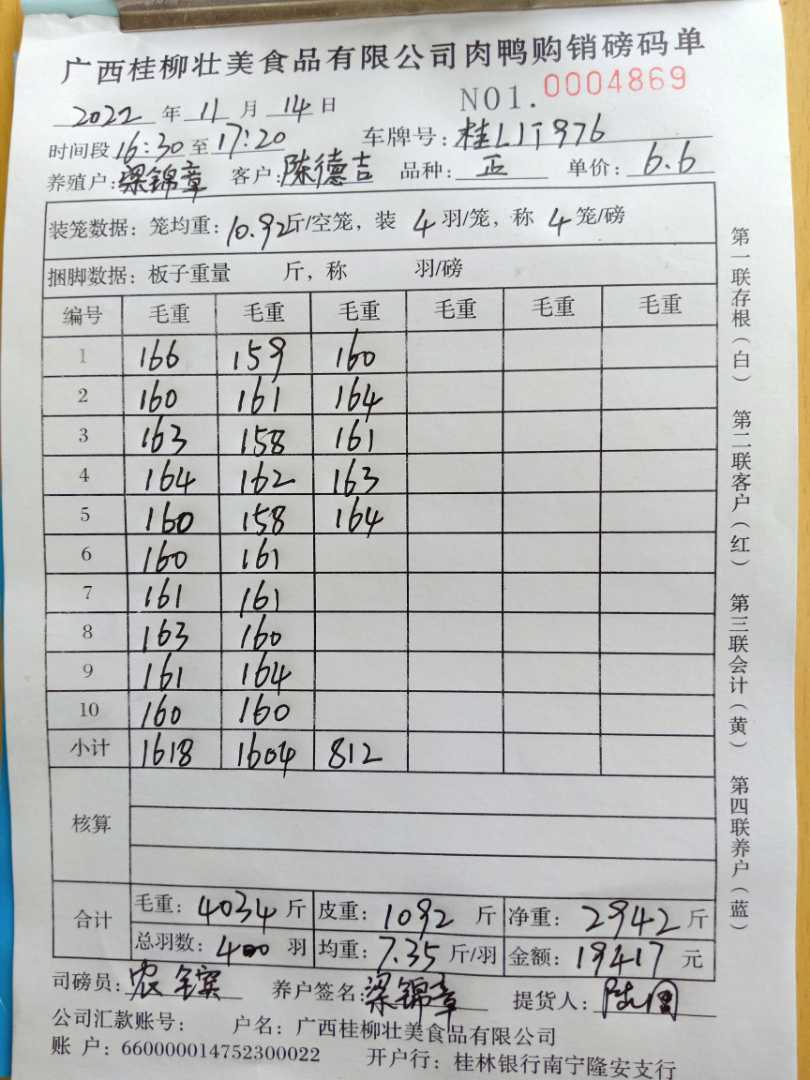 广西桂柳壮美食品有限公司肉鸭购销磅码单
2022 年 11 月 14 日 NO1. 0004869
时间段 16:30 至 17:20 车牌号: 桂LJT976
养殖户: 梁锦章 客户: 陈德吉 品种: 正 单价: 6.6
装笼数据: 笼均重: 10.92 斤/空笼, 装 4 羽/笼, 称 4 笼/磅
捆脚数据: 板子重量 斤, 称 羽/磅
编号 毛重 毛重 毛重 毛重 毛重 毛重
1 166 159 160
2 160 161 164
3 163 158 161
4 164 162 163
5 160 158 164
6 160 161
7 161 161
8 163 160
9 161 164
10 160 160
小计 1618 1604 812
核算
合计 毛重: 4034 斤 皮重: 1092 斤 净重: 2942 斤
总羽数: 400 羽 均重: 7.35 斤/羽 金额: 19417 元
司磅员: 农 养户签名: 梁锦章 提货人: 陈
公司汇款账号: 户名: 广西桂柳壮美食品有限公司
账 户: 660000014752300022 开户行: 桂林银行南宁隆安支行
第一联存根(白) 第二联客户(红) 第三联会计(黄) 第四联养户(蓝)